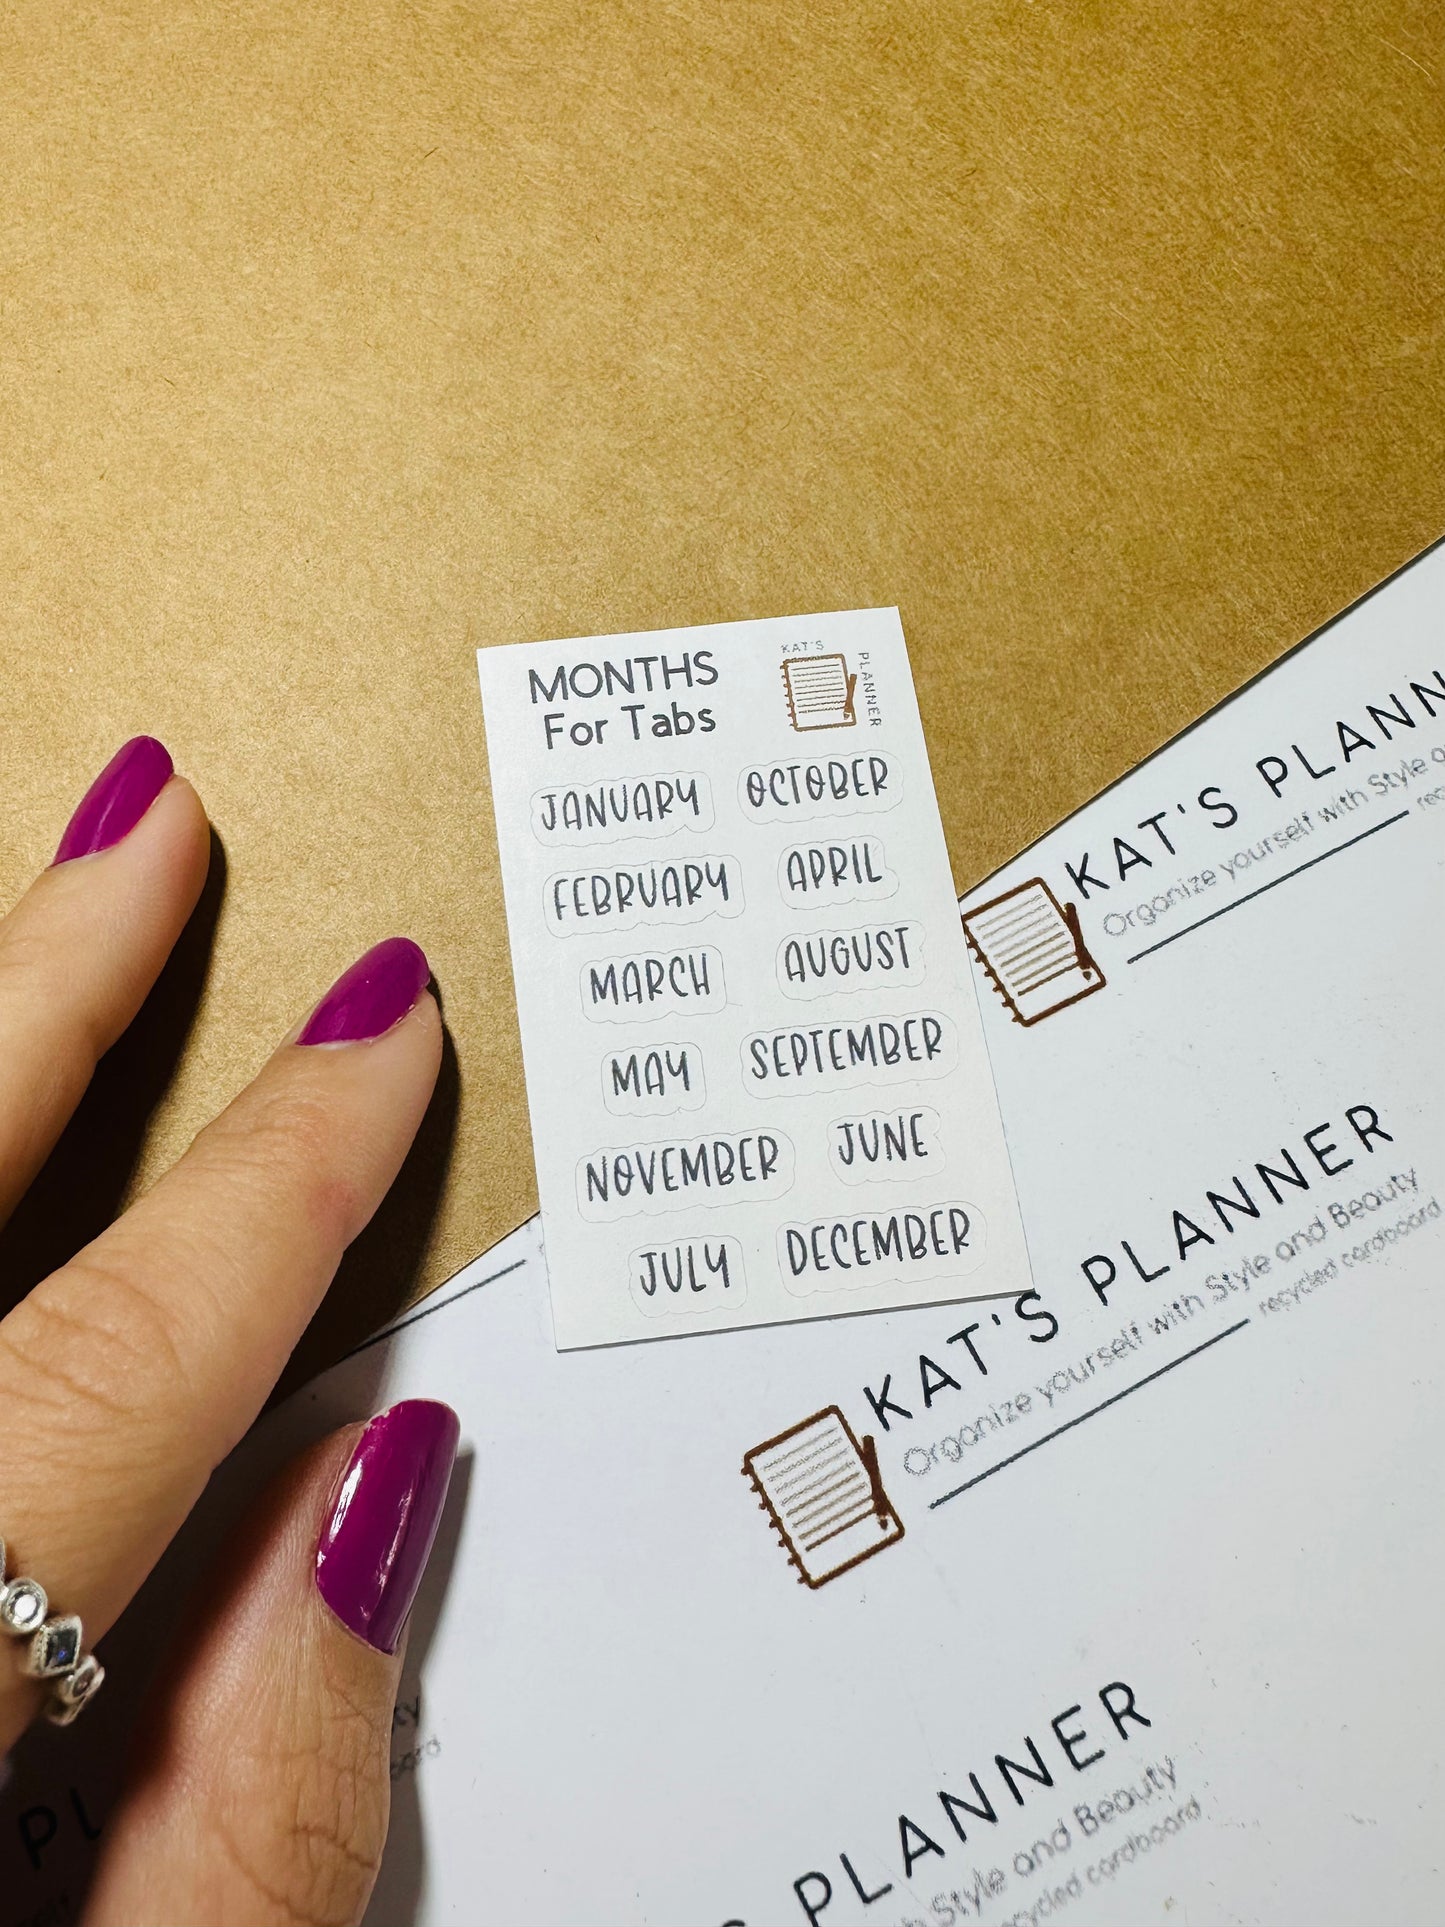 MONTHS
For Tabs
KAT'S
PLANNER
JANUARY
OCTOBER
FEBRUARY
APRIL
MARCH
AUGUST
MAY
SEPTEMBER
NOVEMBER
JUNE
JULY
DECEMBER
KAT'S PLANN
Organize yourself with Style
KAT'S PLANNER
Organize yourself with Style and Beauty
recycled cardboard
PLANNER
Style and Beauty
recycled cardboard
PL